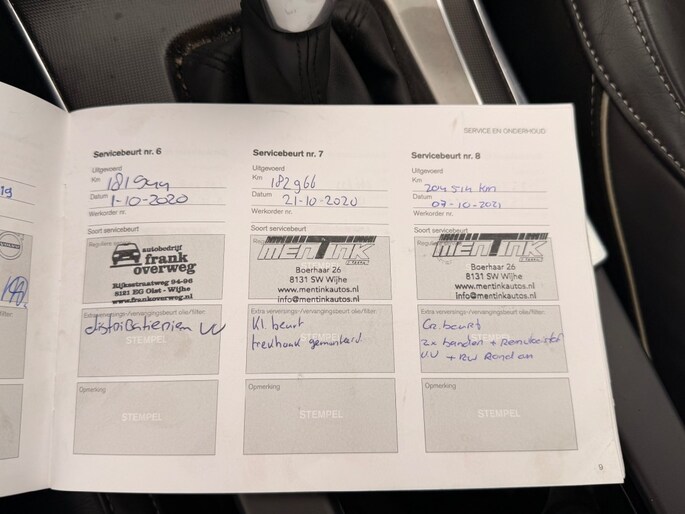 19
SERVICE EN ONDERHOUD
Servicebeurt nr. 6
Uitgevoerd
Km 181944
Datum 1-10-2020
Werkorder nr.
Soort servicebeurt
autobedrijf
frank
overweg
Rijksstraatweg 94-96
8121 EG Olst - Wijhe
www.frankoverweg.nl
Extra verversings-/vervangingsbeurt olie/filter:
distributieriem VV
STEMPEL
Opmerking
STEMPEL
Servicebeurt nr. 7
Uitgevoerd
Km 182966
Datum 21-10-2020
Werkorder nr.
Soort servicebeurt
MENTINK
Boerhaar 26
8131 SW Wijhe
www.mentinkautos.nl
info@mentinkautos.nl
Extra verversings-/vervangingsbeurt olie/filter:
Kl beurt
trekhaak gemonteerd
STEMPEL
Opmerking
STEMPEL
Servicebeurt nr. 8
Uitgevoerd
Km 204514 km
Datum 07-10-2021
Werkorder nr.
Soort servicebeurt
MENTINK
Boerhaar 26
8131 SW Wijhe
www.mentinkautos.nl
info@mentinkautos.nl
Extra verversings-/vervangingsbeurt olie/filter:
Gr. beurt
2x banden + Remvloeistof
V.V + RW Rond om
STEMPEL
Opmerking
STEMPEL
9